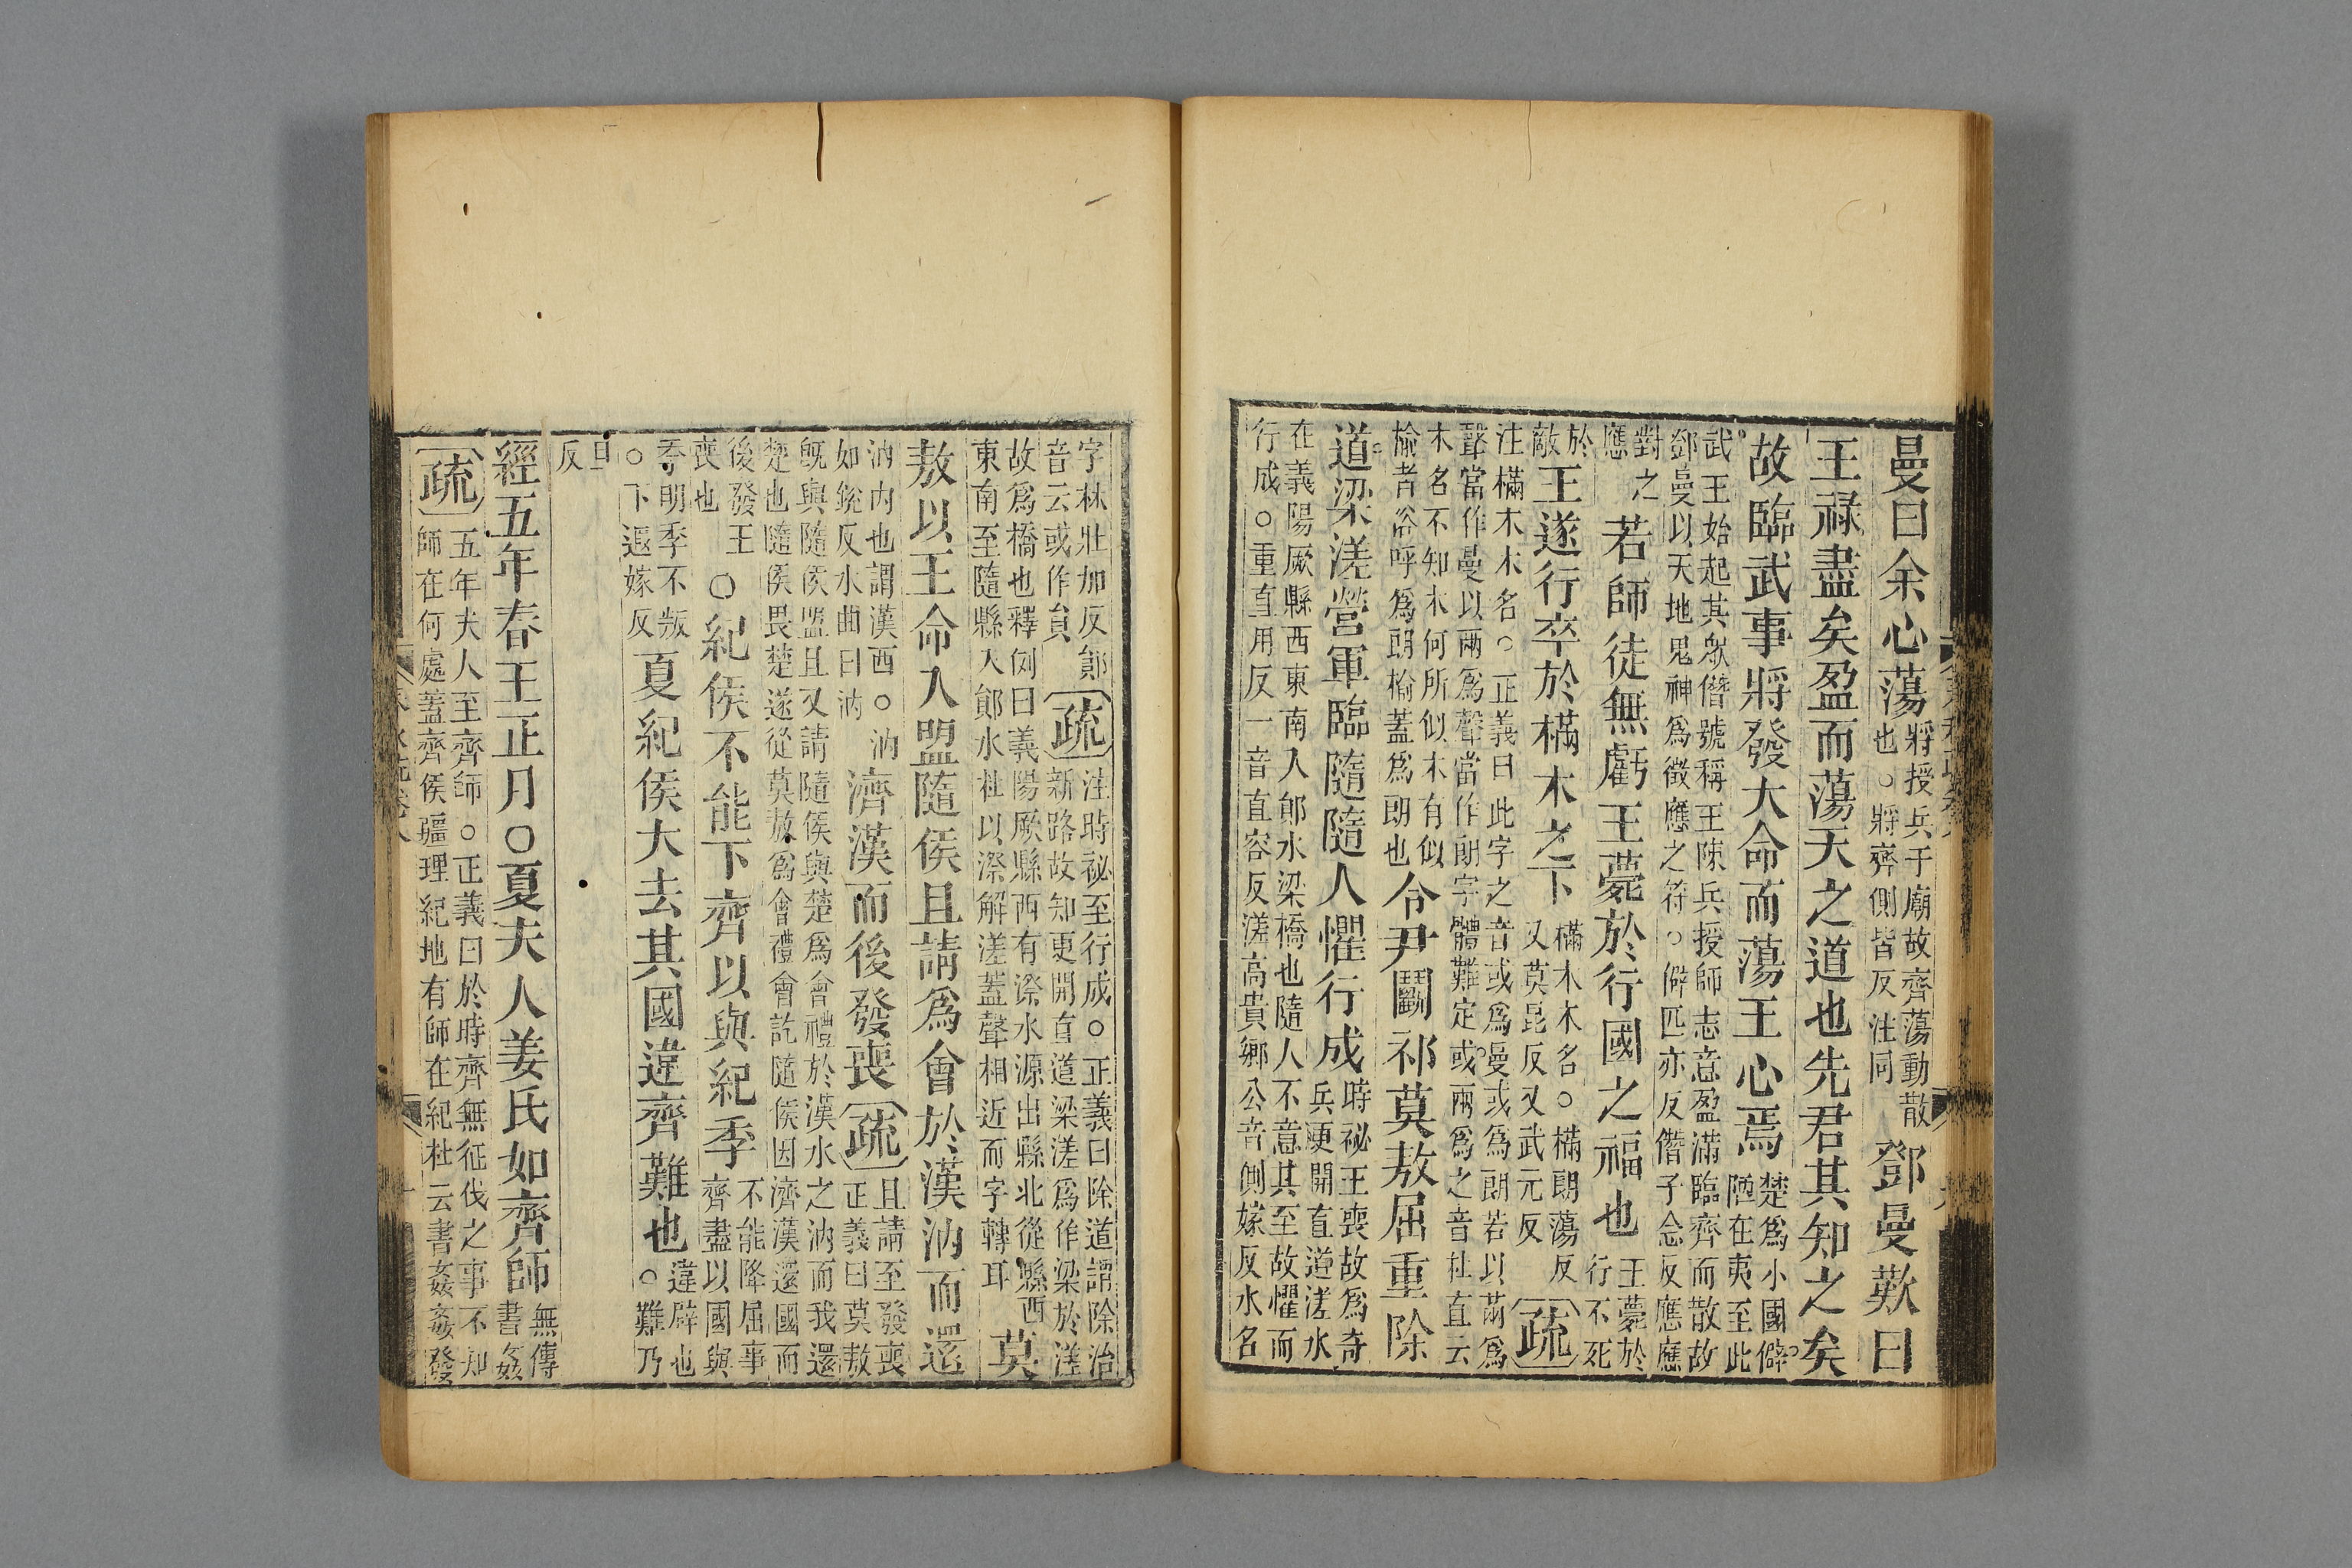 曼曰余心蕩將授兵于廟故齊蕩動散
也○將齊側皆反注同鄧曼歎曰
王祿盡矣盈而蕩天之道也先君其知之矣
故臨武事將發大命而蕩王心焉楚爲小國僻
陋在夷至此
武王始起其眾僭號稱王陳兵授師志意盈滿臨齊而散故
鄧曼以天地鬼神爲徵應之符○僻匹亦反僭子念反應應
對之
應若師徒無虧王薨於行國之福也王薨於
行不死
於
敵王遂行卒於樠木之下樠木木名○樠朗蕩反
又莫昆反又武元反疏
注樠木木名○正義曰此字之音或爲曼或爲朗若以㒼爲
聲當作曼以兩爲聲當作朗字體難定或兩爲之音杜直云
木名不知木何所似木有似
榆者俗呼爲朗榆蓋爲朗也令尹鬬祁莫敖屈重除
道梁溠營軍臨隨隨人懼行成時祕王喪故爲奇
兵更開直道溠水
在義陽厥縣西東南入鄖水梁橋也隨人不意其至故懼而
行成○重直用反一音直容反溠高貴鄉公音側嫁反水名
字林壯加反鄖
音云或作貟疏注時祕至行成○正義曰除道謂除治
新路故知更開直道梁溠爲作梁於溠
故爲橋也釋例曰義陽厥縣西有溠水源出縣北從縣西
東南至隨縣入鄖水杜以漈解溠蓋聲相近而字轉耳莫
敖以王命入盟隨侯且請爲會於漢汭而還
汭內也謂漢西○汭
如銳反水曲曰汭濟漢而後發喪疏且請至發喪
正義曰莫敖
旣與隨侯盟且又請隨侯與楚爲會禮於漢水之汭而我還
楚也隨侯畏楚遂從莫敖爲會禮會訖隨侯因濟漢還國而
後發王
喪也○紀侯不能下齊以與紀季不能降屈事
齊盡以國與
季明季不叛
○下遐嫁反夏紀侯大去其國違齊難也違辟也
○難乃
旦
反
經五年春王正月○夏夫人姜氏如齊師無傳
書姦
疏五年夫人至齊師○正義曰於時齊無征伐之事不知
師在何處蓋齊侯疆理紀地有師在紀杜云書姦姦發